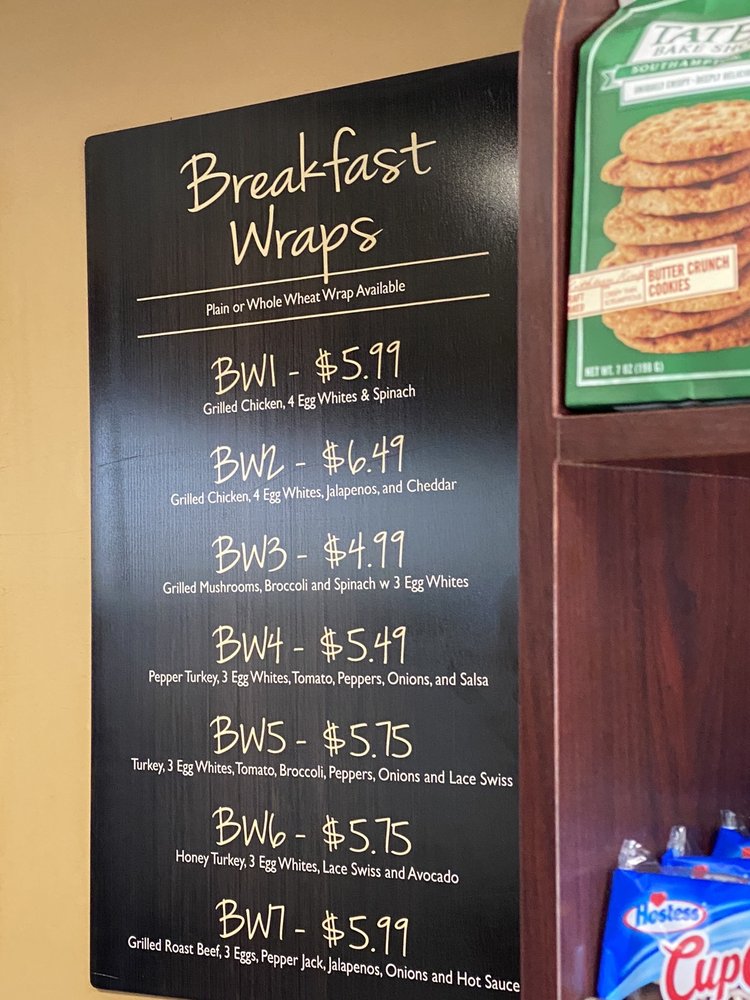 Breakfast
Wraps
Plain or Whole Wheat Wrap Available
BW1 - $5.99
Grilled Chicken, 4 Egg Whites & Spinach
BW2 - $6.49
Grilled Chicken, 4 Egg Whites, Jalapenos, and Cheddar
BW3 - $4.99
Grilled Mushrooms, Broccoli and Spinach w 3 Egg Whites
BW4 - $5.49
Pepper Turkey, 3 Egg Whites, Tomato, Peppers, Onions, and Salsa
BW5 - $5.75
Turkey, 3 Egg Whites, Tomato, Broccoli, Peppers, Onions and Lace Swiss
BW6 - $5.75
Honey Turkey, 3 Egg Whites, Lace Swiss and Avocado
BW7 - $5.99
Grilled Roast Beef, 3 Eggs, Pepper Jack, Jalapenos, Onions and Hot Sauce
TATE
BAKE SH
SOUTHAMP
BUTTER CRUNCH
COOKIES
NET WT. 7 OZ (198 G)
Hostess
Cup